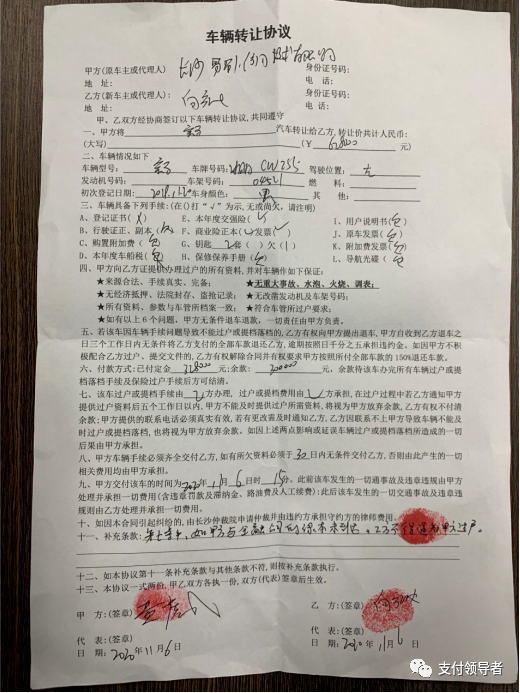 车辆转让协议
甲方(原车主或代理人) 身份证号码:
地 址: 电 话:
乙方(新车主或代理人): 身份证号码:
地 址: 电 话:
甲、乙双方经协商签订以下车辆转让协议,共同遵守
一、甲方将 汽车转让给乙方,转让价共计人民币:
(大写) (¥ 元)
二、车辆情况如下
车辆型号: 车牌号码: CW255 驾驶位置: 左
发动机号码: 车架号码: 04521 燃 料:
初次登记日期: 车身颜色: 黑 其 他:
三、车辆具备下列手续:(在()打“√”为示,无或尚欠,请注明)
A、登记证书( ) E、本年度交强险( √ I、用户说明书(
B、行驶证正、副本( F、商业险正本( √ 发票( J、原车发票(
C、购置附加费( G、钥匙 2 套( )欠( ) K、附加费发票(
D、本年度车船税( H、保修保养手册( L、导航光碟(
四、甲方向乙方证提供办理过户的所有资料,并对车辆作如下保证:
★来源合法、手续真实、完备; ★无重大事故、水泡、火烧、调表;
★无经济抵押、法院封存、盗抢记录; ★无改凿发动机及车架号码;
★所有资料、参数与车管所档案一致; ★符合车管所过户要求;
★如有以上6个问题、甲方无条件退车退款,一切责任由甲方负责。
五、若该车因车辆手续问题导致不能过户或提档落档,乙方有权向甲方提出退车,甲方自收到乙方退车之
日三个工作日内无条件将乙方支付的全部车款退还乙方,逾期按照日千分之五承担违约金。如因甲方不
积极配合乙方过户、提交文件的,乙方有权解除合同并有权要求甲方按照所付全部车款的150%退还车款。
六、付款方式:已付定金 328000 元;余款: 300000 元、余款待该车办完所有车辆过户或提
档落档手续及保险过户手续后方可结清。
七、该车过户或提档手续由 乙 方办理,过户或提档费用由 乙 方承担,在过户过程中若乙方通知甲方
提供过户资料后五个工作日以内,甲方不能及时提供过户所需资料,将视为甲方放弃余款,乙方有权不付清
余款;甲方提供的联系电话必须真实有效,若有更改需及时通知乙方,乙方因联系不上甲方导致车辆不能及
时过户或提档落档,也将视为甲方放弃余款。如因上述两点影响或延误车辆过户或提档落档所造成的一切
后果由甲方承担。
八、甲方车辆手续必须齐全交付乙方,如有所欠资料必须于 30 日内无条件交付乙方,否则由此产生的一切
相关费用均由甲方承担。
九、甲方交付该车的时间为 2020 年 11 月 6 日 时 15 分。此前该车发生的一切通事故及违章违规由甲方
处理并承担一切费用(含违章罚款及滞纳金、路油费及人工续费);此后该车发生的一切交通事故及违章违
规则由乙方处理并承担一切费用。
十、如因本合同引起纠纷的,由长沙仲裁院申请仲裁并由违约方承担守约方的律师费用。
十一、补充条款:
十二、如本协议第十一条补充条款与其他条款不符,则按补充条款执行。
十三、本协议一式两份,甲乙双方各执一份,双方(代表)签章后生效。
甲 方:(签章) 乙 方:(签章)
代 表:(签章) 代 表:(签章)
日 期: 2020 年 11 月 6 日 日 期: 2020 年 11 月 6 日
支付领导者